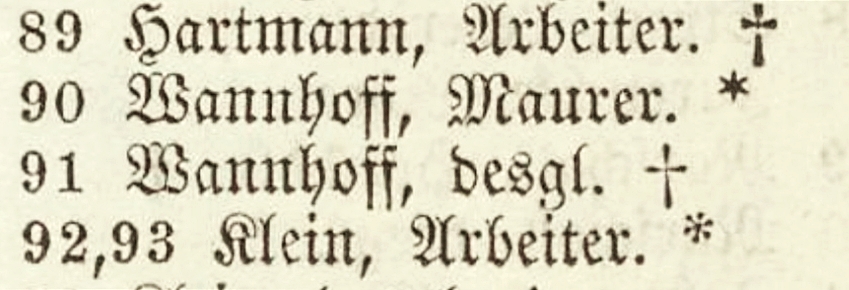 89 Hartmann, Arbeiter. †
90 Wannhoff, Maurer. *
91 Wannhoff, desgl. †
92,93 Klein, Arbeiter. *